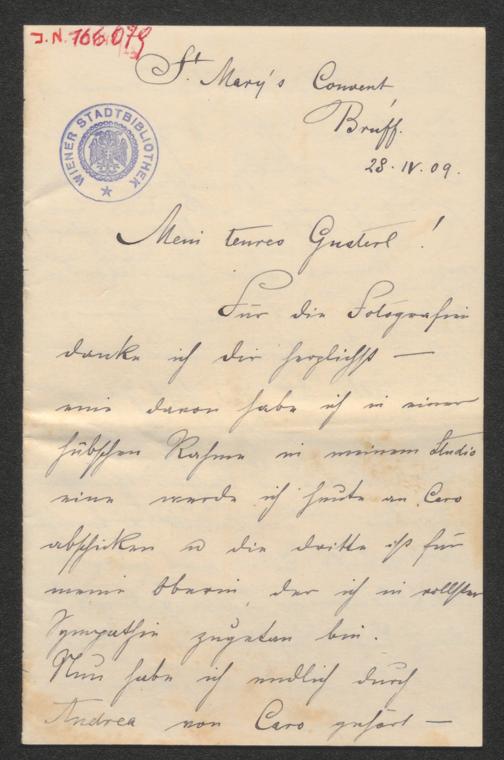 J.N. 166.079
St. Mary's Convent
Bruff.
28. IV. 09.
WIENER STADTBIBLIOTHEK
Mein teures Gusterl!
Für die Fotografien
danke ich dir herzlichst —
eine davon habe ich in einer
hübschen Rahme in meinem Studio
eine werde ich heute an Caro
abschicken u die dritte ist für
meine Oberin, der ich in vollster
Sympathie zugetan bin.
Nun habe ich endlich durch
Andrea von Caro gehört —